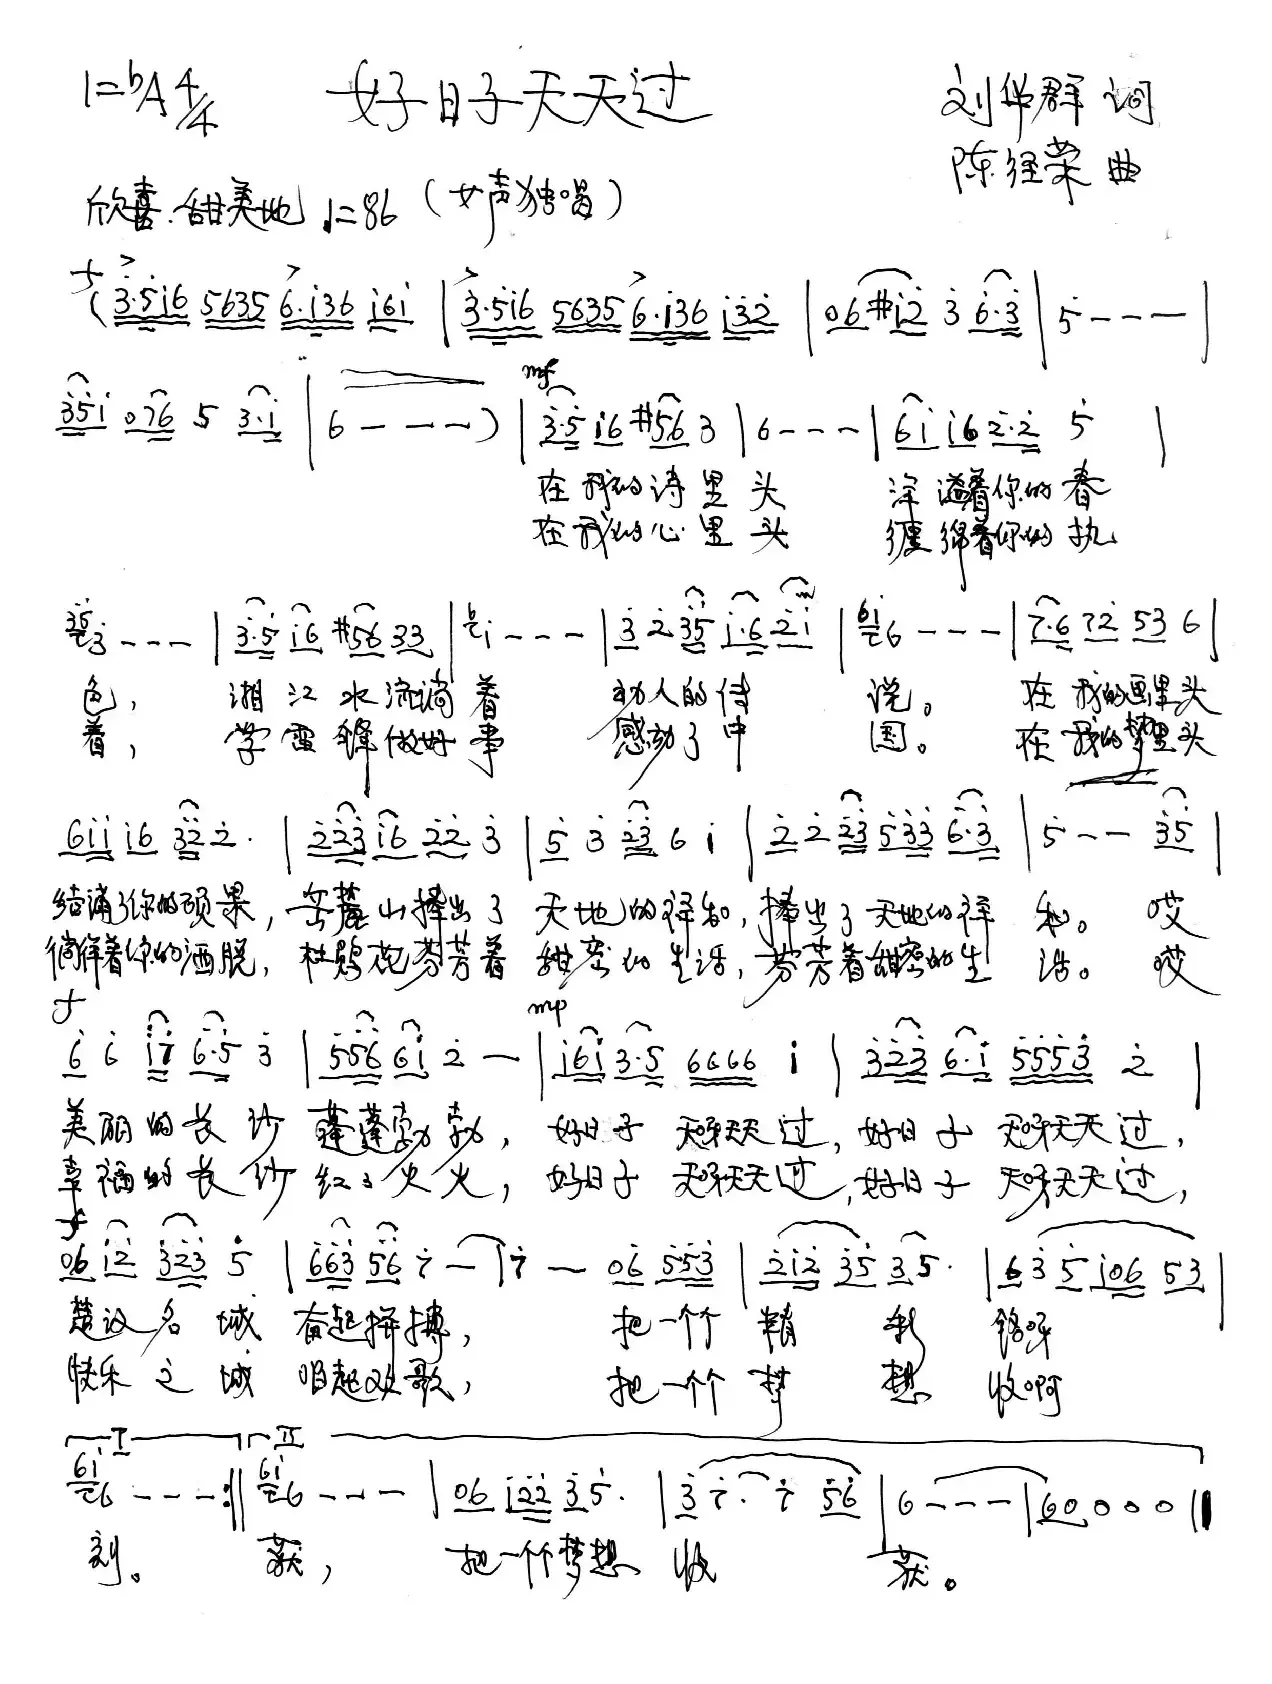 1=bA 4/4 好日子天天过 刘华群 词
陈经荣 曲
欣喜.甜美地 ♩=86 (女声独唱)
f
(3.516 5635 6.136 161 | 3.516 5635 6.136 132 | 06 #12 3 6.3 | 5 - - - |
mf
351 076 5 3.1 | 6 - - - ) | 3.5 16 #56 3 | 6 - - - | 61 16 2.2 5 |
在我的诗里头 洋溢着你的春
在我的心里头 缠绵着你的执
35 3 - - - | 3.5 16 #56 33 | 1 - - - | 3 2 35 1.6 21 | 61 6 - - - | 7.6 72 53 6 |
色, 湘江水流淌着 动人的传说。 在我的画里头
着, 学雷锋做好事 感动了中国。 在我的梦里头
611 16 32 2. | 223 16 22 3 | 5 3 23 6 1 | 2 2 23 533 6.3 | 5 - - 35 |
结满了你的硕果, 岳麓山捧出了 天地的祥和, 捧出了天地的祥和。 哎
徜徉着你的洒脱, 杜鹃花芬芳着 甜蜜的生活, 芬芳着甜蜜的生活。 哎
f mp
6 6 17 6.5 3 | 556 61 2 - | 161 3.5 6666 1 | 323 6.1 5553 2 |
美丽的长沙 蓬蓬勃勃, 好日子 天呀天天过, 好日子 天呀天天过,
幸福的长沙 红红火火, 好日子 天呀天天过, 好日子 天呀天天过,
f
06 12 323 5 | 663 56 7 - | 7 - 06 553 | 212 35 3 5. | 6 3 5 106 53 |
楚汉名城 奋起拼搏, 把一个个精彩 铭呀
快乐之城 唱起欢歌, 把一个个梦想 收啊
I II
61 6 - - - :|| 61 6 - - - | 06 122 3 5. | 3 7. 7 56 | 6 - - - | 6 0 0 0 0 ||
刻。 获, 把一个个梦想 收 获。